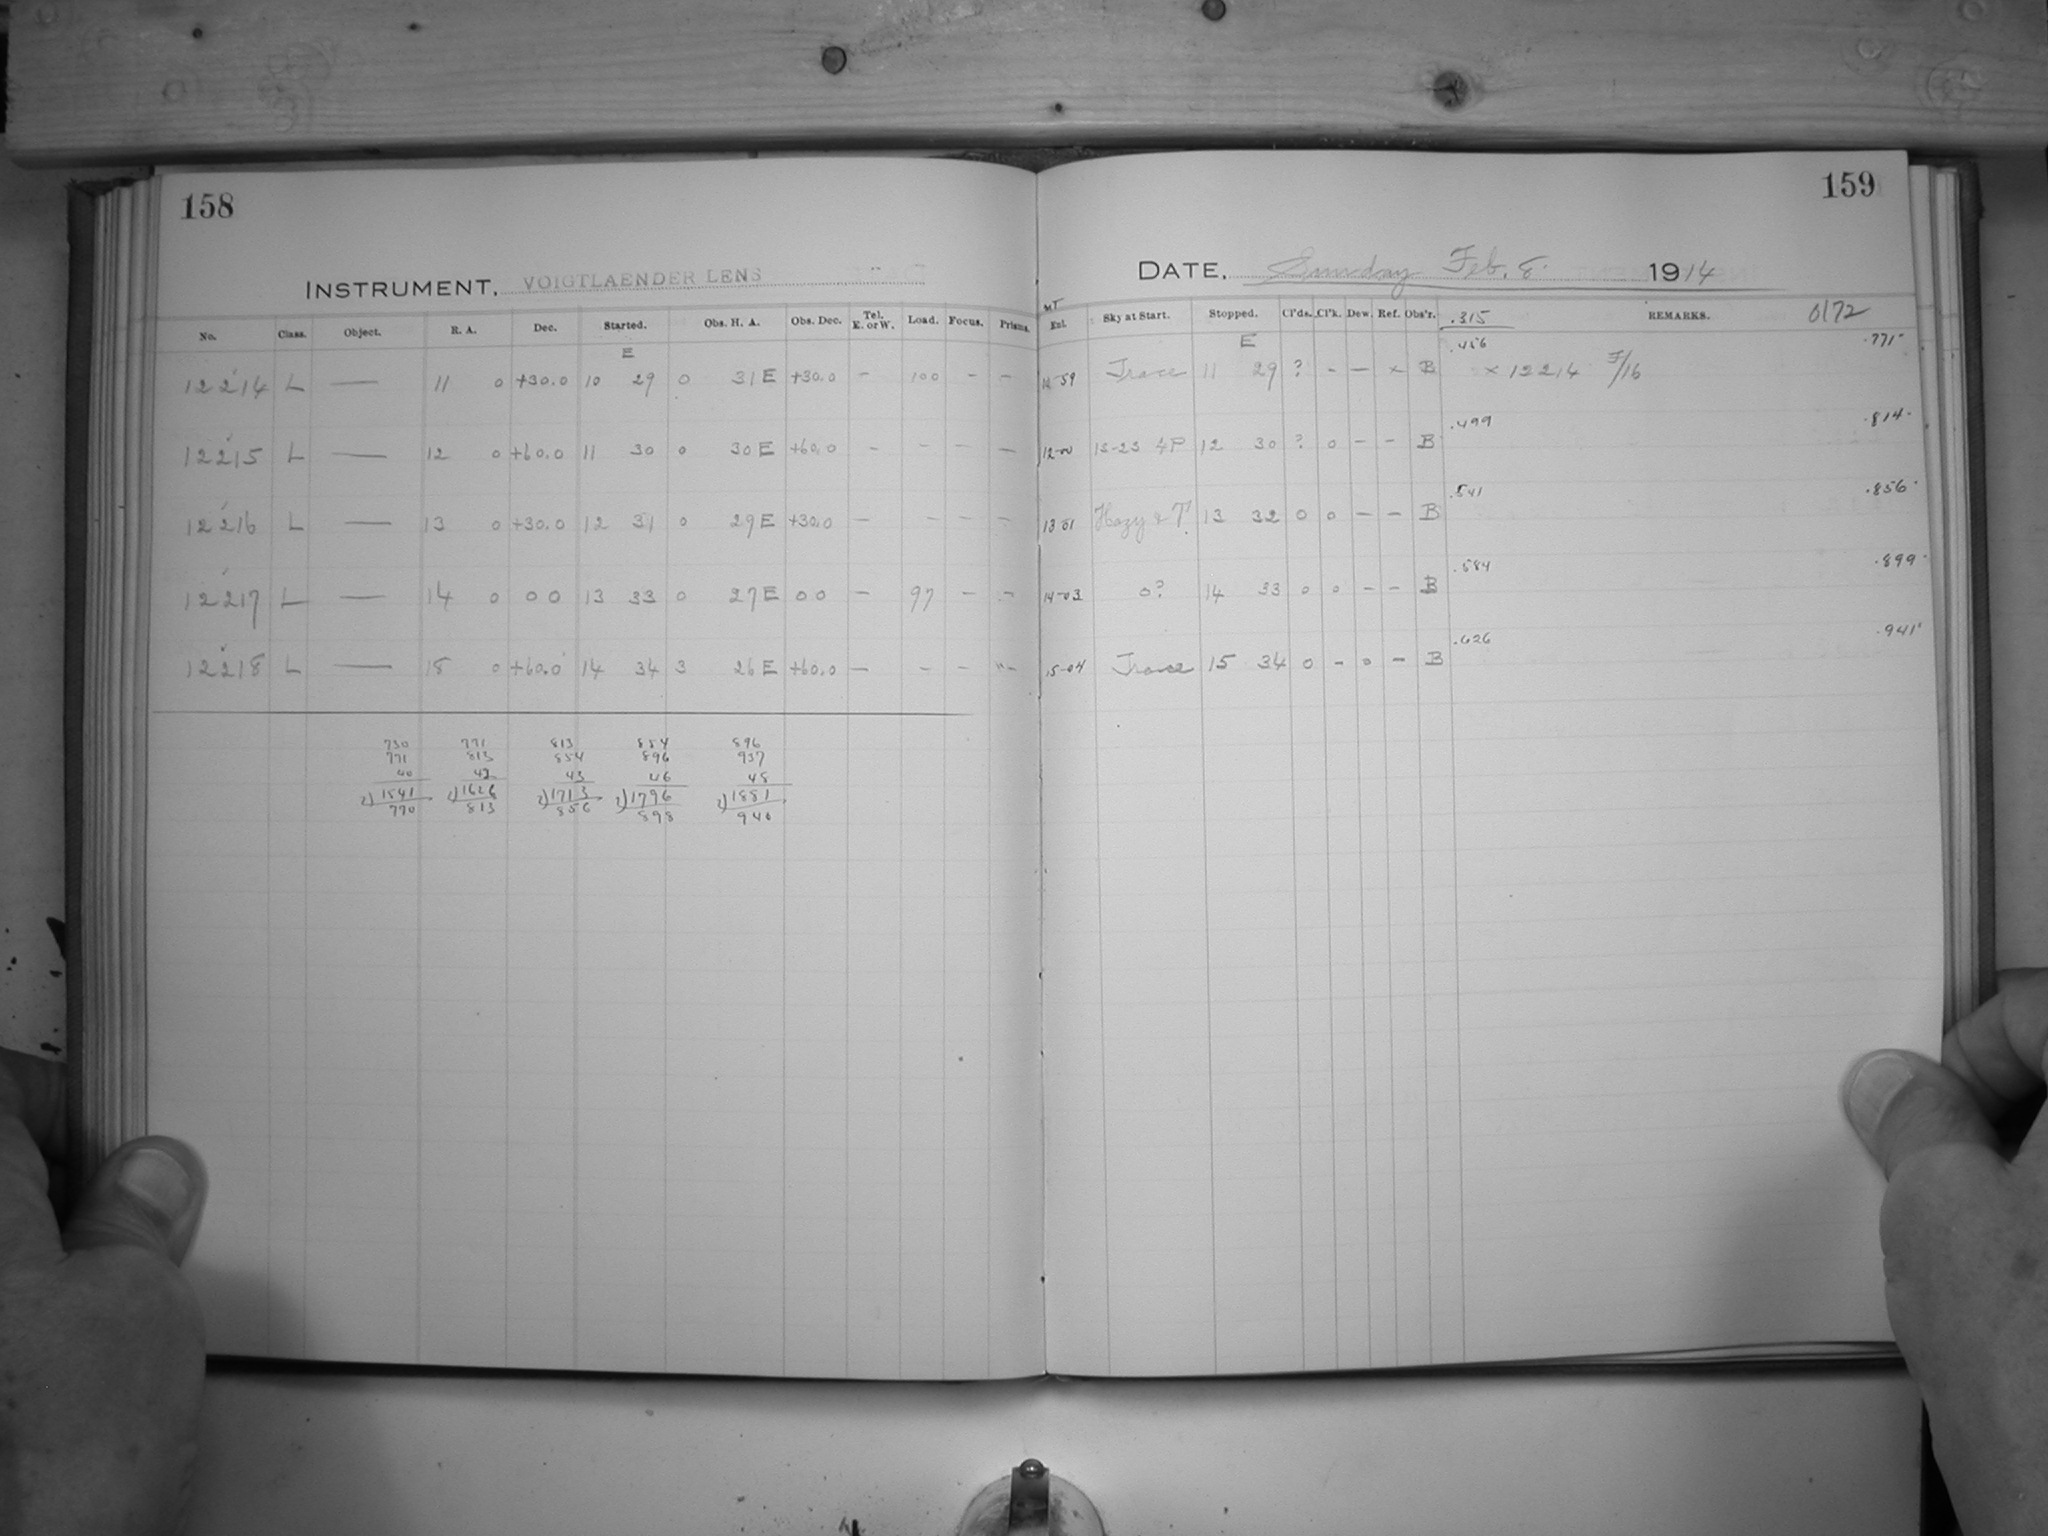 158
INSTRUMENT. VOIGTLAENDER LENS
No. Class. Object. R. A. Dec. Started. Obs. H. A. Obs. Dec. Tel. E. or W. Load. Focus. Prisms.
E
12214 L — 11 0 +30.0 10 29 0 31 E +30.0 — 100 — —
12215 L — 12 0 +60.0 11 30 0 30 E +60.0 — — — —
12216 L — 13 0 +30.0 12 31 0 29 E +30.0 — — — —
12217 L — 14 0 0 0 13 33 0 27 E 0 0 — 97 — —
12218 L — 15 0 +60.0 14 34 3 26 E +60.0 — — — —
730 771 813 854 896
771 813 854 896 937
40 42 43 46 48
2)1541 2)1626 2)1713 2)1796 2)1881
770 813 856 898 940
159
DATE. Sunday Feb. 8. 1914
MT
Exl. Sky at Start. Stopped. Cl'ds. Cl'k. Dew. Ref. Obs'r. .315 REMARKS. 0172
E .456 .771
10-59 Trace 11 29 ? - — x B x 12214 F/16
.499 .814
12-00 13-23 4P 12 30 ? 0 - - B
.541 .856
13-01 Hazy & T. 13 32 0 0 — - B
.584 .899
14-03 0? 14 33 0 0 - - B
.626 .941
15-04 Trace 15 34 0 - 0 - B